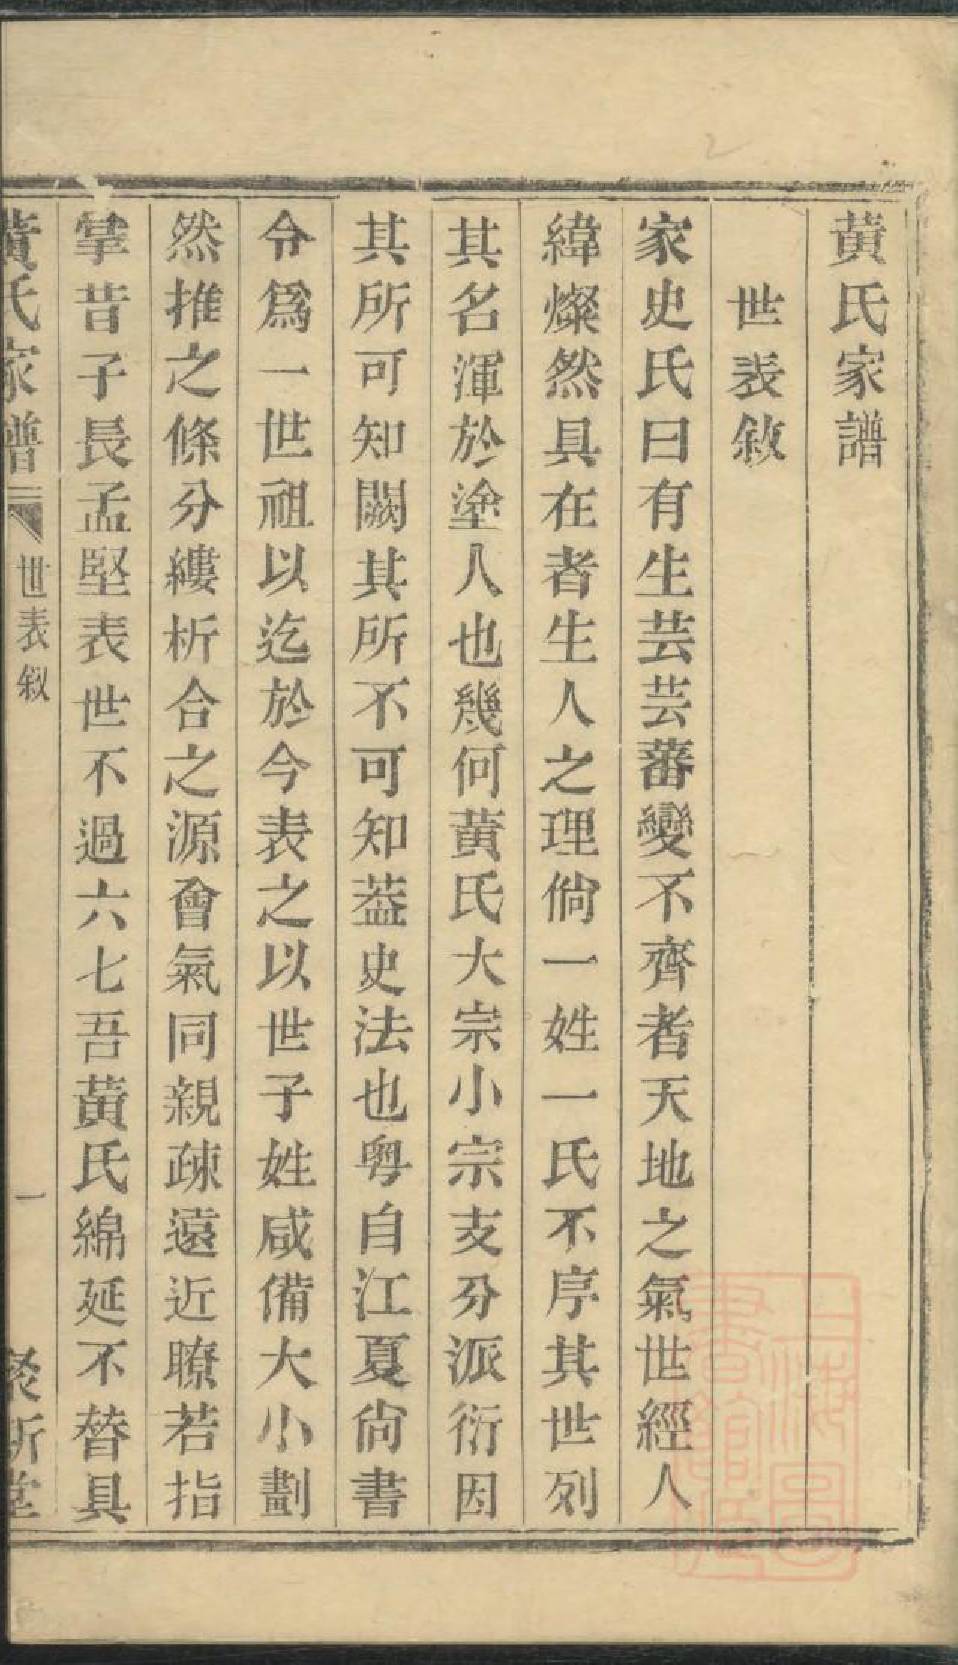 黄氏家譜
世表敘
家史氏曰有生芸芸蕃變不齊者天地之氣世經人
緯燦然具在者生人之理倘一姓一氏不序其世列
其名渾於塗人也幾何黄氏大宗小宗支分派衍因
其所可知闕其所不可知葢史法也粤自江夏尙書
令爲一世祖以迄於今表之以世子姓咸備大小劃
然推之條分縷析合之源會氣同親疎遠近瞭若指
掌昔子長孟堅表世不過六七吾黄氏綿延不替具
黄氏家譜 世表敘 一